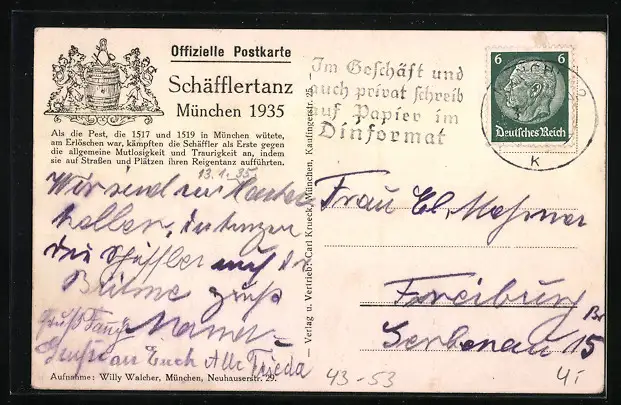 Offizielle Postkarte
Schäfflertanz
München 1935
Als die Pest, die 1517 und 1519 in München wütete,
am Erlöschen war, kämpften die Schäffler als Erste gegen
die allgemeine Mutlosigkeit und Traurigkeit an, indem
sie auf Straßen und Plätzen ihren Reigentanz aufführten.
13.1.35
Wir sind im
keller, da tanzen
die Schäffler auf der
Bühne Gruß
Gruß
Euch Alle Frieda
Aufnahme: Willy Walcher, München, Neuhauserstr. 29.
Verlag u. Vertrieb: Carl Krueck, München, Kaufingerstr. 25.
Im Geschäft und
auch privat schreib
auf Papier im
Dinformat
6 6
Deutsches Reich
K
Frau El.
Freiburg Br
15
43-53